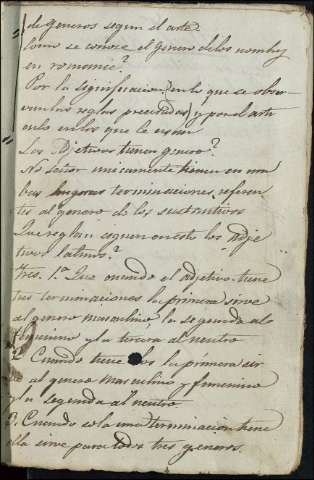 de generos segun el arte?
Como se conoce el genero de los nombres
en romance?
Por la significacion, en lo que se obser
van las reglas precitadas, y por el arti
culo en los que le usan
Los Adjetivos tienen genero?
No Señor unicamente tienen en am
bas lenguas terminaciones referen
tes al genero de los sustantivos
Que reglas siguen en esto los adje
tivos latinos?
Tres. 1.a Que cuando el adjetivo tiene
tres terminaciones la primera sirve
al genero masculino, la segunda al
femenino y la tercera al neutro
2. Cuando tiene dos la primera sir
ve al genero masculino y femenino
y la segunda al neutro
3. Cuando sola una terminacion tiene
ella sirve para todos tres generos.